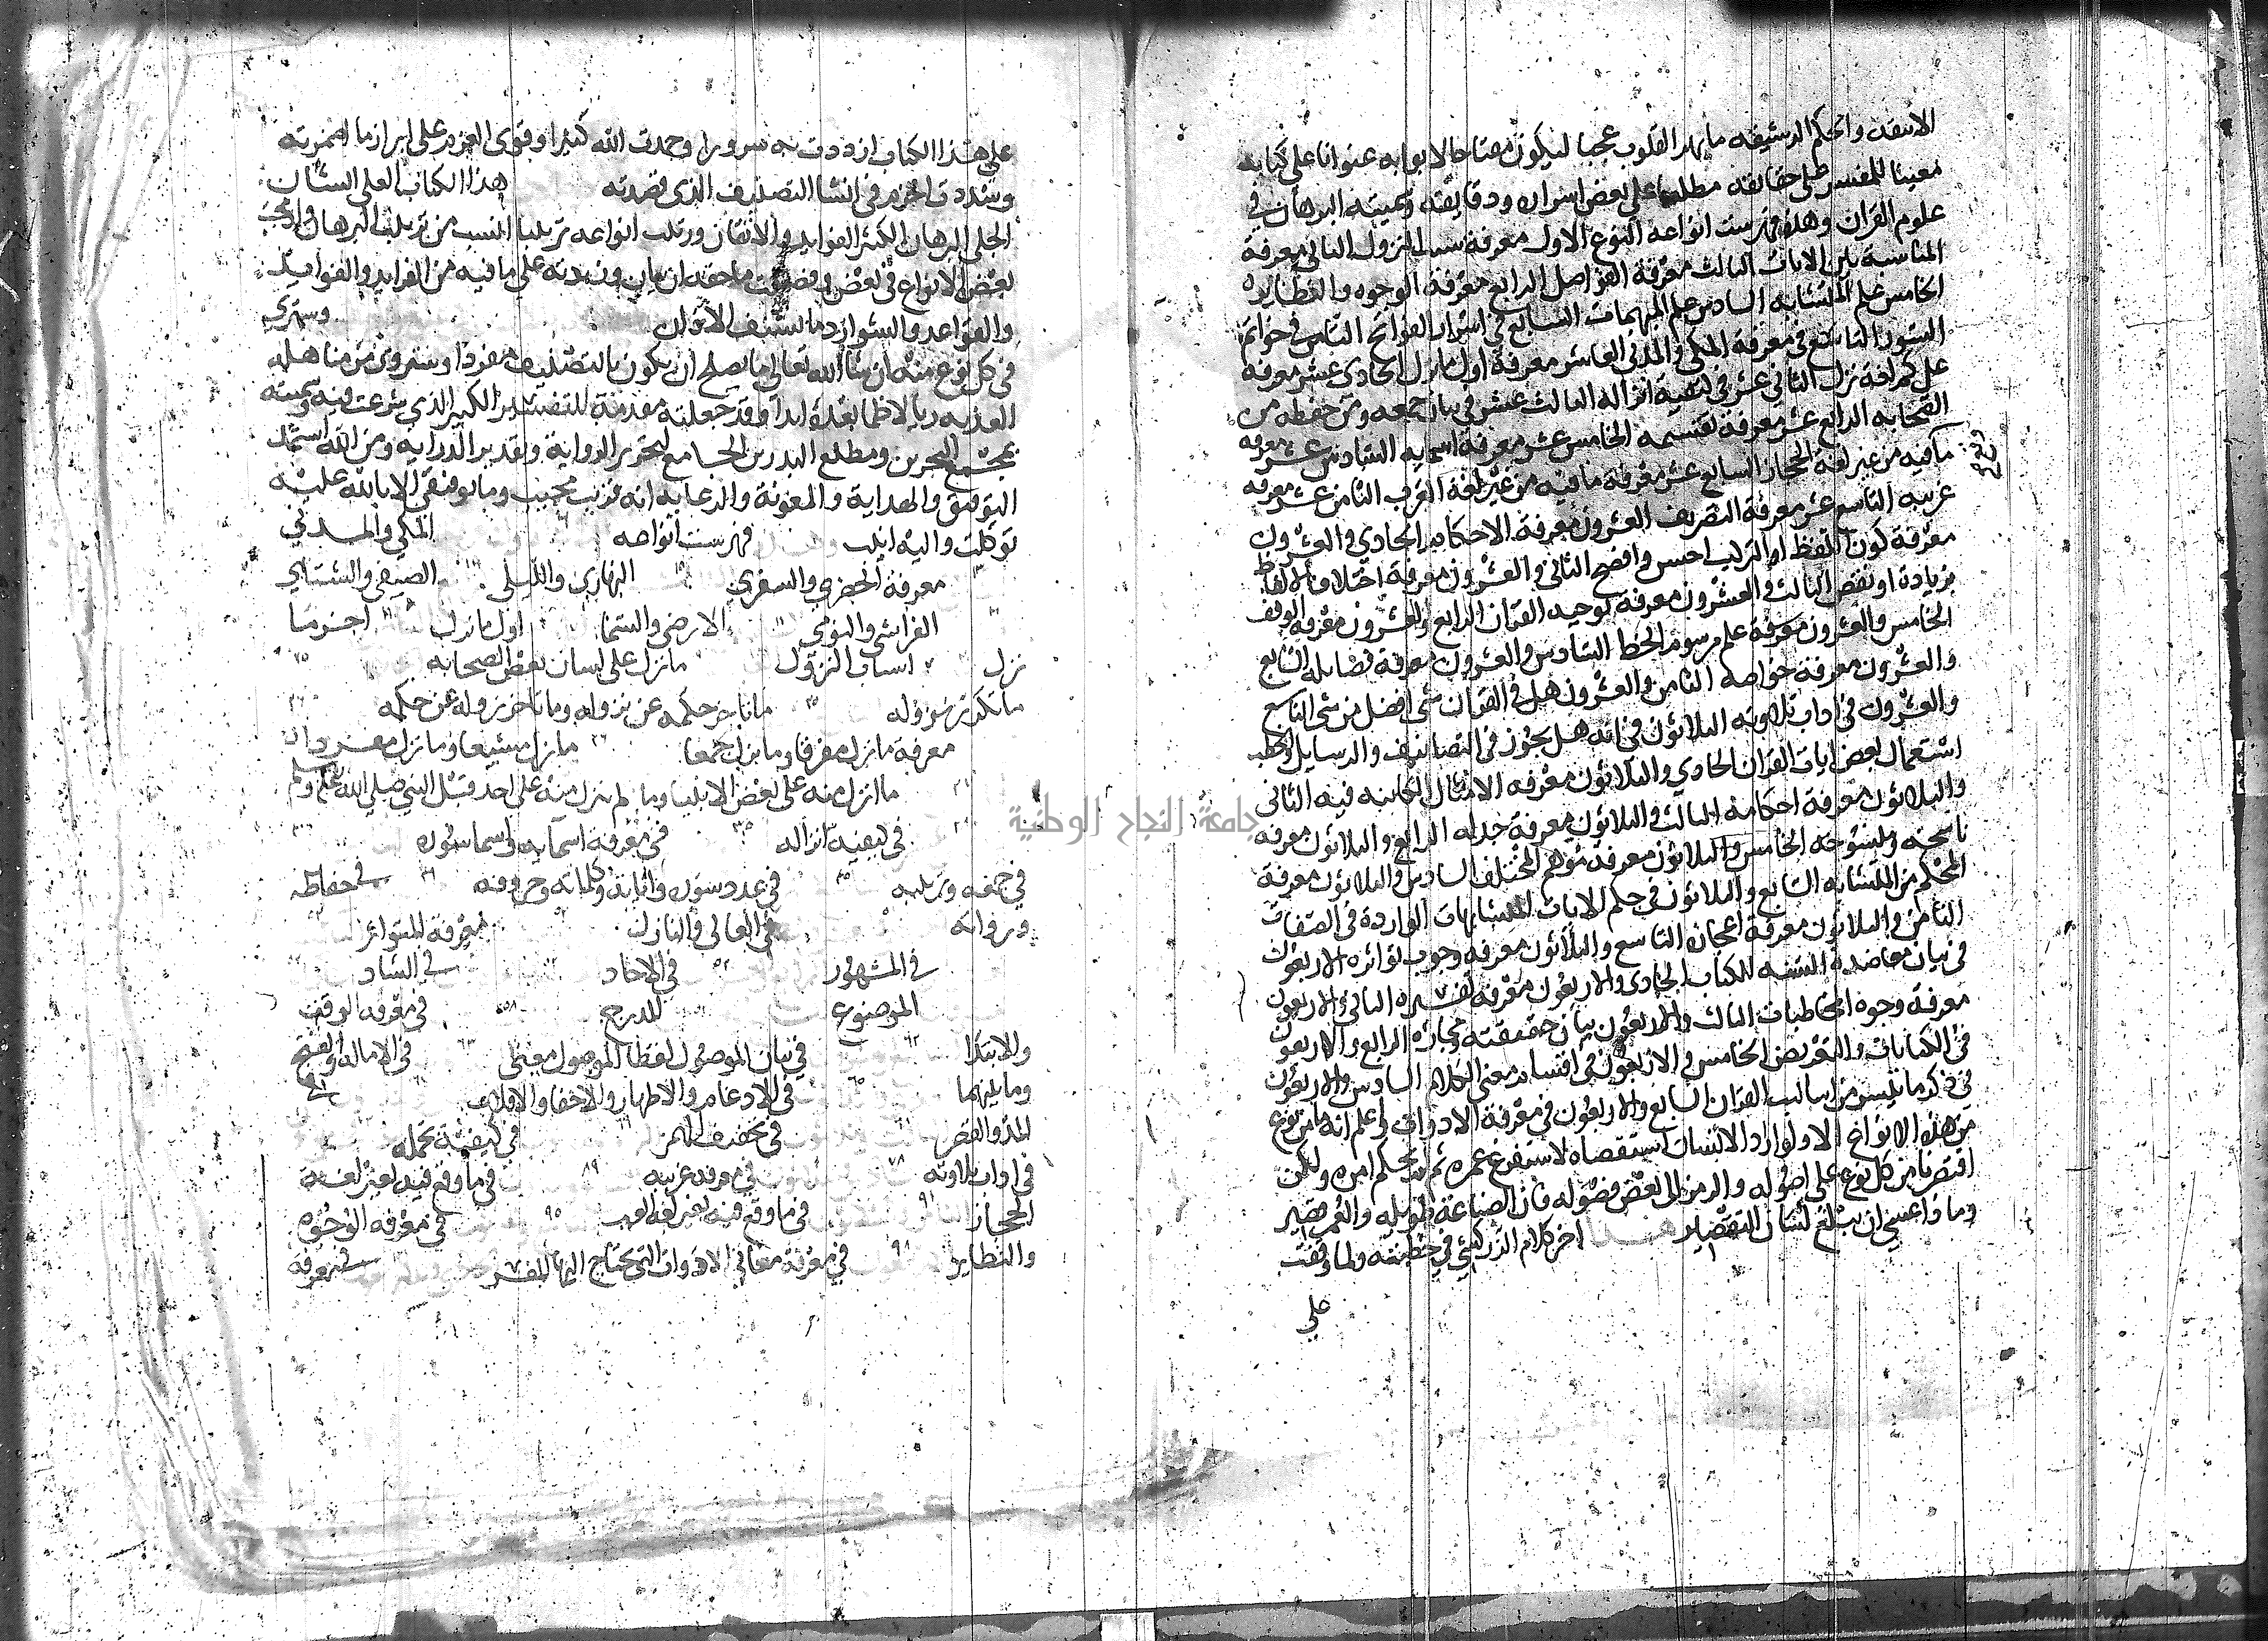 الانيقة والحكم الرشيقة ما يهز القلوب عجبا ليكون مفتاحا لابوابه عنوانا على كتابه
معينا للمفسر على حقائقه مطلعا على بعض اسراره ودقايقه وسميته البرهان في
علوم القران وهذه فهرست انواعه النوع الاول معرفة سبب النزول الثاني معرفة
المناسبة بين الايات الثالث معرفة الفواصل الرابع معرفة الوجوه والنظاير
الخامس علم المتشابه السادس علم المبهمات السابع في اسرار الفواتح الثامن في خواتم
السور التاسع في معرفة المكي والمدني العاشر معرفة اول ما نزل الحادي عشر معرفه
على كم لغة نزل الثاني عشر في كيفية انزاله الثالث عشر في بيان جمعه ومن حفظه من
الصحابه الرابع عشر معرفة تقسيمه الخامس عشر معرفة اسمايه السادس عشر معرفه
ما فيه من غير لغة الحجاز السابع عشر معرفة ما فيه من غير لغة العرب الثامن عشر معرفه
غريبه التاسع عشر معرفة التصريف العشرون معرفة الاحكام الحادي والعشرون
معرفة كون اللفظ او التركيب احسن وافصح الثاني والعشرون معرفة اختلاف الالفاظ
بزيادة او نقص الثالث والعشرون معرفة توجيه القران الرابع والعشرون معرفه الوقف
الخامس والعشرون معرفة علم مرسوم الخط السادس والعشرون معرفة فضايله السابع
والعشرون معرفة خواصه الثامن والعشرون هل في القران شي افضل من شي التاسع
والعشرون في اداب تلاوته الثلاثون في انه هل يجوز في التصانيف والرسايل والخطب
استعمال بعض ايات القران الحادي والثلاثون معرفه الامثال الكاينه فيه الثاني
والثلاثون معرفة احكامه الثالث والثلاثون معرفة جدله الرابع والثلاثون معرفه
ناسخه ومنسوخه الخامس والثلاثون معرفه موهم المختلف السادس والثلاثون معرفة
المحكم من المتشابه السابع والثلاثون في حكم الايات المتشابهات الواردة في الصفات
الثامن والثلاثون معرفة اعجازه التاسع والثلاثون معرفه وجوب تواتره الاربعون
في بيان معاضدة السنه للكتاب الحادي والاربعون معرفة تفسيره الثاني والاربعون
معرفة وجوه المخاطبات الثالث والاربعون بيان حقيقته ومجازه الرابع والاربعون
في الكنايات والتعريض الخامس والاربعون في اقسام معنى الكلام السادس والاربعون
في ذكر ما تيسر من اساليب القران السابع والاربعون في معرفة الادوات واعلم انه ما من نوع
من هذه الانواع الا ولو اراد الانسان استقصاه لاستفرغ عمره ثم لم يحكم امره ولكن
اقتصرنا من كل نوع على اصوله والرمز الى بعض فصوله فان الصناعة طويله والعمر قصير
وما ذا عسى ان يبلغ لسان التقصير هذا اخر كلام الزركشي في خطبته ولما وقفت
على
على هذا الكتاب ازددت به سرورا وحمدت الله كثيرا وقوى العزم على ابراز ما اضمرته
وشددت الحزم في انشا التصنيف الذي قصدته هذا الكتاب العلي الشان
الجلي البرهان الكثير الفوايد والاتقان ورتبت انواعه ترتيبا انسب من ترتيب البرهان وادمجت
بعض الانواع في بعض وفصلت ما حقه ان يبان وزدته على ما فيه من الفرايد والفوايد
والقواعد والشوارد ما يشنف الاذان وسترى
في كل نوع منه ان شا الله تعالى ما يصلح ان يكون بالتصنيف مفردا وستروى من مناهله
العذبه ريا لا ظما بعده ابدا وقد جعلته مقدمة للتفسير الكبير الذي شرعت فيه وسميته
بمجمع البحرين ومطلع البدرين الجامع لتحرير الرواية وتقدير الدراية ومن الله استمد
التوفيق والهداية والمعونة والرعاية انه قريب مجيب وما توفيقي الا بالله عليه
توكلت واليه انيب فهرست انواعه المكي والمدني
معرفة الحضري والسفري النهاري والليلي الصيفي والشتاي
الفراشي والنومي الارضي والسما اول ما نزل اخر ما
نزل اسباب النزول ما نزل على لسان بعض الصحابه
ما تكرر نزوله ما تاخر حكمه عن نزوله وما تاخر نزوله عن حكمه
معرفة ما نزل مفرقا وما نزل جمعا ما نزل مشيعا وما نزل مفردا
ما انزل منه على بعض الانبيا وما لم ينزل منه على احد قبل النبي صلى الله عليه وسلم
في كيفية انزاله في معرفة اسمايه واسما سوره
في جمعه وترتيبه في عدد سوره واياته وكلماته وحروفه في حفاظه
ورواته في العالي والنازل معرفة المتواتر
في المشهور في الاحاد في الشاد
الموضوع المدرج في معرفه الوقف
والابتدا في بيان الموصول لفظا الموصول معنى في الاماله والفتح
وما بينهما في الادغام والاظهار والاخفا والاقلاب في
المد والقصر في تخفيف الهمز في كيفية تحمله
في اداب تلاوته في معرفه غريبه في ما وقع فيه بغير لغة
الحجاز في ما وقع فيه بغير لغة العرب في معرفه الوجوه
والنظاير في معرفة معاني الادوات التي يحتاج اليها المفسر في معرفة
جامعة النجاح الوطنية